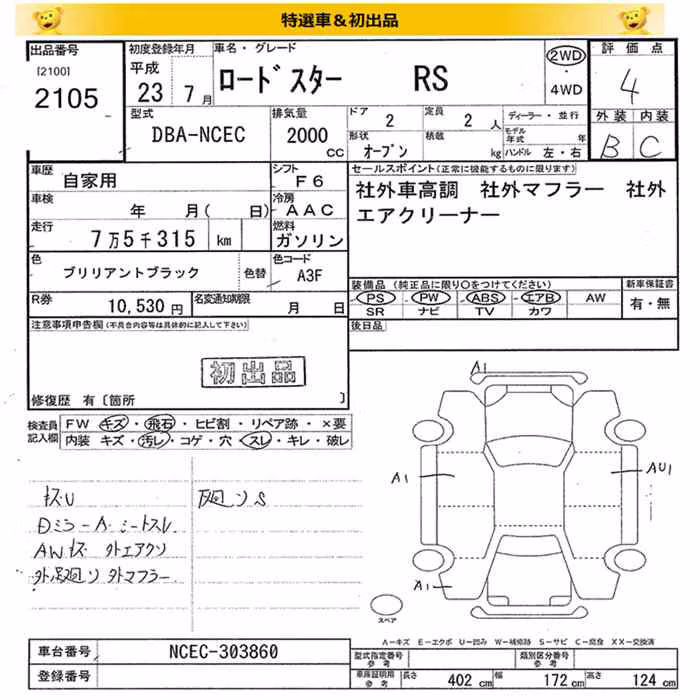 特選車＆初出品
出品番号 [2100] 2105
初度登録年月 平成 23 7月
車名・グレード ロードスター RS
2WD・4WD
評価点 4
外装 B 内装 C
型式 DBA-NCEC
排気量 2000 CC
ドア 2
定員 2 人
形状 オープン
積載 kg
ディーラー・並行
モデル年式 年
ハンドル 左・右
車歴 自家用
シフト F6
車検 年 月( 日)
冷房 AAC
走行 7万5千315 km
燃料 ガソリン
色 ブリリアントブラック 色替
色コード A3F
R券 10,530円
名変通知期限 月 日
セールスポイント(正常に機能するものに限ります)
社外車高調 社外マフラー 社外
エアクリーナー
装備品 (純正品に限り○をつけてください)
PS・PW・ABS・エアB・AW
SR ナビ TV カワ
新車保証書 有・無
後日品
注意事項申告欄(不具合内容等は具体的に記入して下さい)
初出品
修復歴 有〔箇所 〕
検査員記入欄
FW キズ・飛石・ヒビ割・リペア跡・×要
内装 キズ・汚レ・コゲ・穴・スレ・キレ・破レ
キズU
DミラーA シートスレ
AWキズ 外エアクリ
外足廻り 外マフラー
下廻りS
A1
A1
AU1
A1
スペア
A－キズ E－エクボ U－凹み W－補修跡 S－サビ C－腐食 XX－交換済
車台番号 NCEC-303860
登録番号
型式指定番号 参考
類別区分番号 参考
車庫証明用 参考 長さ 402 cm 幅 172 cm 高さ 124 cm